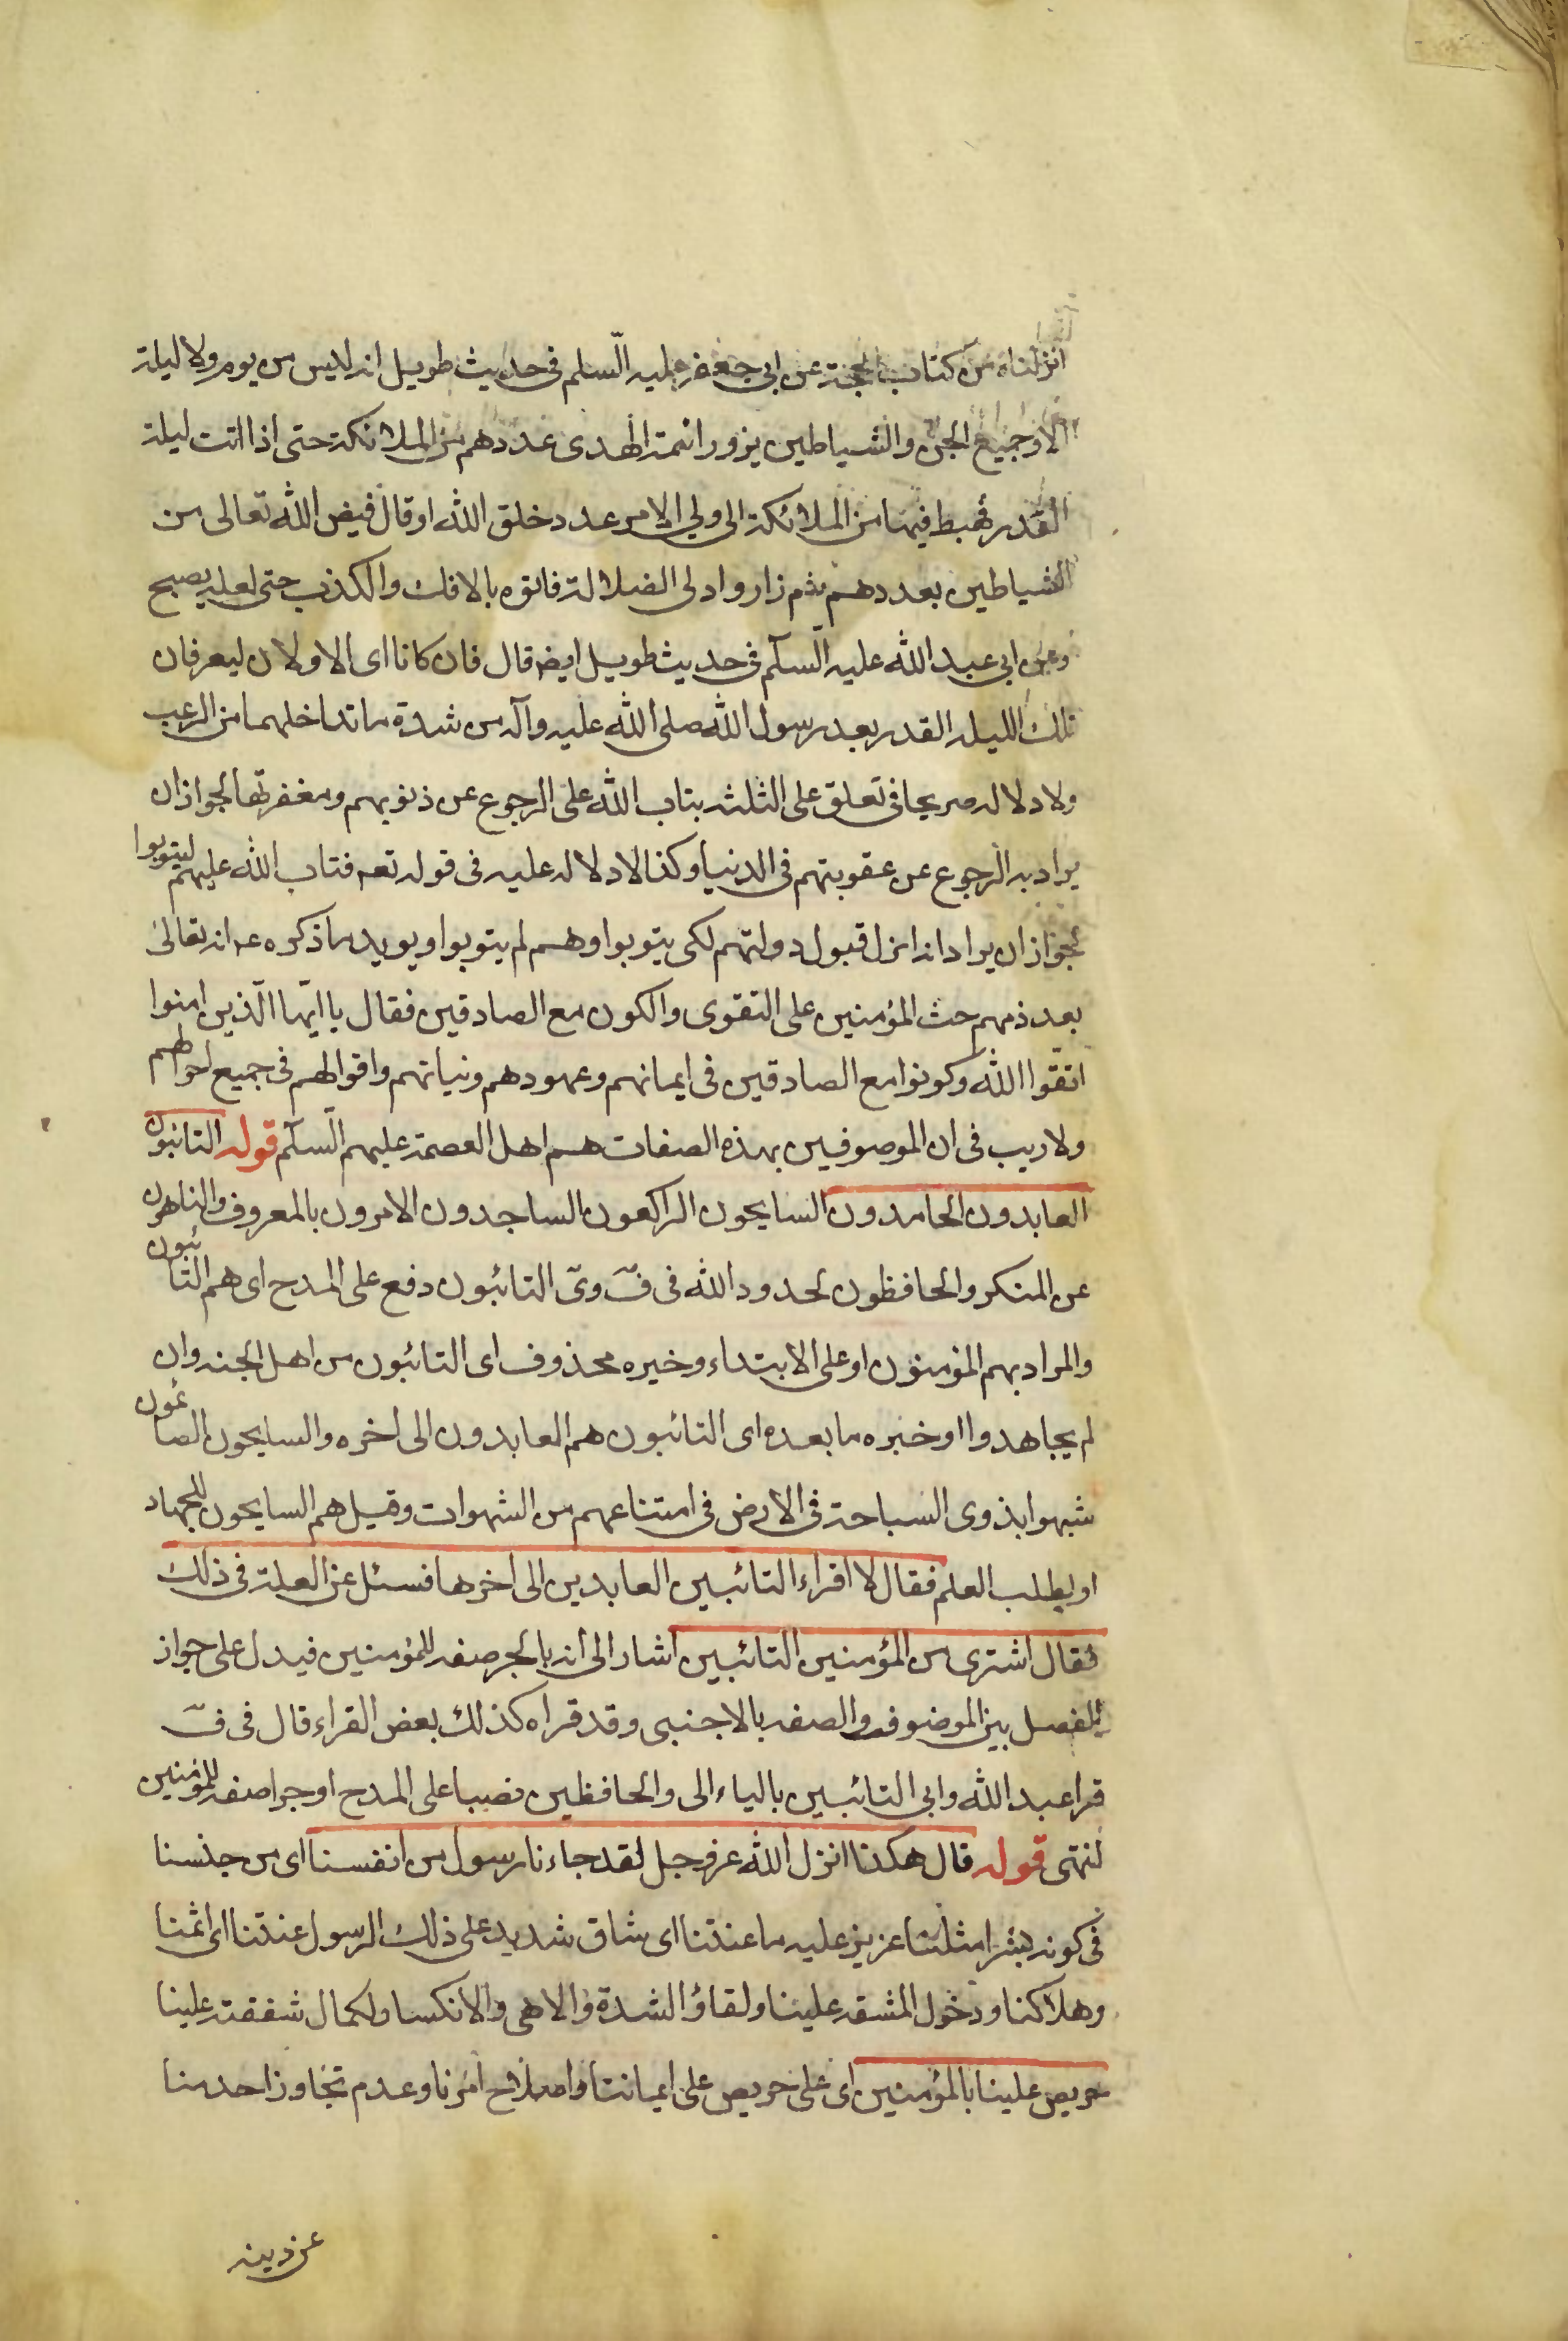 انزلناه من كتاب الحجة عن ابي جعفر عليه السّلم فى حديث طويل انه ليس من يوم ولا ليلة
الا وجميع الجن والشياطين يزور ائمة الهدى عددهم من الملائكة حتى اذا اتت ليلة
القدر فهبط فيها من الملائكة الى ولي الامر عدد خلق الله او قال قيض الله تعالى من
الشياطين بعددهم ثم زاروا ولى الضلالة فاتوه بالافك والكذب حتى لعله يصبح
وعن ابي عبد الله عليه السّلم فى حديث طويل ايضه قال فان كانا اى الاولان ليعرفان
تلك الليله القدر بعد رسول الله صلى الله عليه وآله من شدة ما تداخلهما من الرعب
ولا دلاله صريحا فى تعلق على الثلثه بتاب الله على الرجوع عن ذنوبهم ومغفرتها لجواز ان
يراد به الرجوع عن عقوبتهم فى الدنيا وكذا لا دلاله عليه فى قوله تعه فتاب الله عليهم ليتوبوا
لجواز ان يراد انه انزل قبول دولتهم لكى يتوبوا وهم لم يتوبوا ويويد ما ذكره عه انه تعالى
بعد ذمهم حث المؤمنين على التقوى والكون مع الصادقين فقال يا ايّها الّذين امنوا
اتقّوا الله وكونوا مع الصادقين فى ايمانهم وعهودهم ونياتهم واقوالهم فى جميع احوالهم
ولا ريب فى ان الموصوفين بهذه الصفات هم اهل العصمة عليهم السّلم قوله التائبون
العابدون الحامدون السايحون الراكعون الساجدون الامرون بالمعروف والناهون
عن المنكر والحافظون لحدود الله فى فّ وىّ التائبون دفع على المدح اى هم التائبون
والمراد بهم المؤمنون او على الابتداء وخيره محذوف اى التائبون من اهل الجنه وان
لم يجاهدوا او خبره ما بعده اى التائبون هم العابدون الى اخره والسايحون الصائمون
شبهوا بذوى السباحة فى الارض فى امتناعهم من الشهوات وقيل هم السايحون للجهاد
او لطلب العلم فقال لا اقراء التائبين العابدين الى اخرها فسئل عن العلة فى ذلك
فقال اشترى من المؤمنين التائبين اشار الى انه بالجر صفه للمؤمنين فيدل على جواز
الفصل بين الموضوف والصفه بالاجنبى وقد قراه كذلك بعض القراء قال فى فّ
قرا عبد الله وابى التائبين بالياء الى والحافظين نصبا على المدح او جرا صفه للمؤمنين
انتهى قوله قال هكذا انزل الله عزوجل لقد جاءنا رسول من انفسنا اى من جنسنا
فى كونه بشرا مثلنا عزيز عليه ما عنتنا اى شاق شديد على ذلك الرسول عنتنا اى اثمنا
وهلاكنا ودخول المشقه علينا ولقاؤ الشدة والاهى والانكسا ولكمال شفقته علينا
حريص علينا بالمؤمنين اى على حريص على ايماننا واصلاح امرنا وعدم تجاوز احد منا
عن دينه